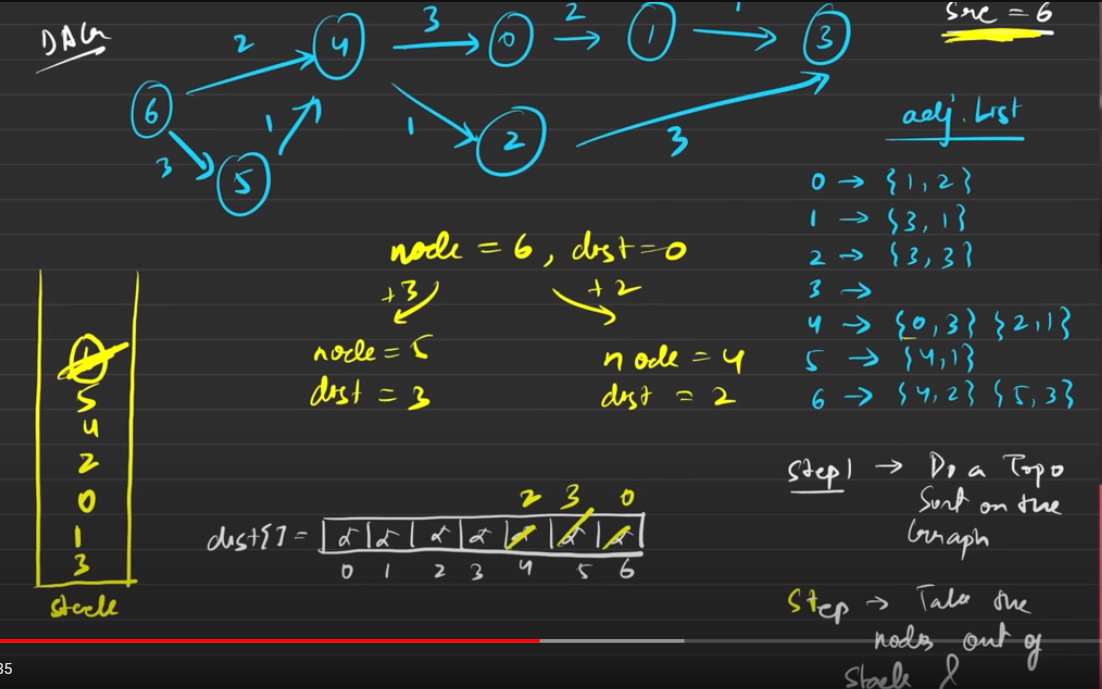 DAG
Src = 6
2
4
3
0
2
1
3
6
3
5
1
1
2
3
adj. List
0 → {1, 2}
1 → {3, 1}
2 → {3, 3}
3 →
4 → {0, 3} {2, 1}
5 → {4, 1}
6 → {4, 2} {5, 3}
node = 6, dist = 0
+3
+2
node = 5
dist = 3
node = 4
dist = 2
5
4
2
0
1
3
stack
2 3 0
dist[] =
0 1 2 3 4 5 6
Step 1 → Do a Topo
Sort on the
Graph
Step → Take the
nodes out of
Stack &
35